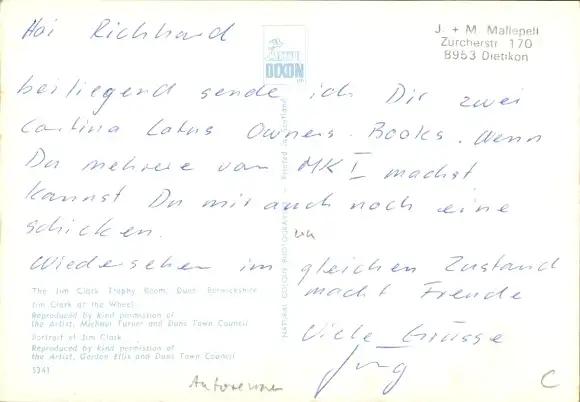 Hoi Richhard
J. + M. Mallepell
Zürcherstr 170
8953 Dietikon
DIXON
beiliegend sende ich Dir zwei
Cortina Lotus Owners Books. Wenn
Du mehrere von MK I machst
kannst Du mir auch noch eine
schicken.
Wiedersehen im gleichen Zustand
macht Freude
Viele Grüsse
Jürg
NATURAL COLOUR PHOTOGRAPH Printed in Scotland
The Jim Clark Trophy Room, Duns, Berwickshire
Jim Clark at the Wheel
Reproduced by kind permission of
the Artist, Michael Turner and Duns Town Council
Portrait of Jim Clark
Reproduced by kind permission of
the Artist, Gordon Ellis and Duns Town Council
5341
Autorennen
C